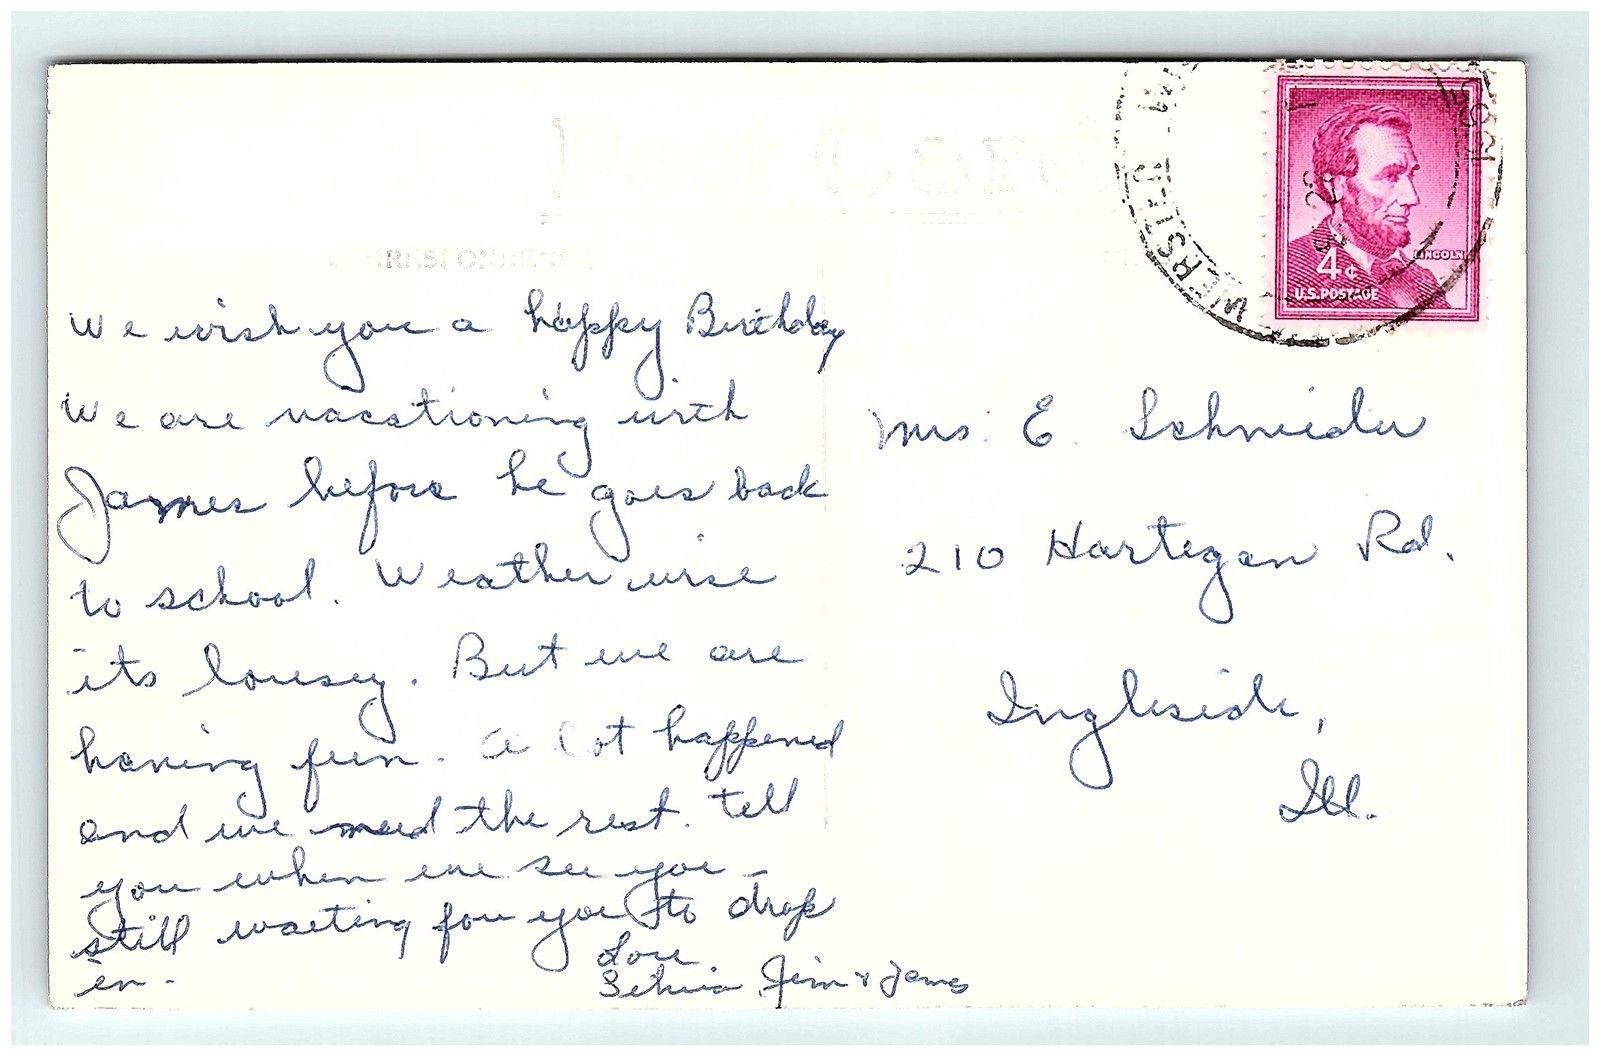 Post Card
CORRESPONDENCE
4¢
LINCOLN
U.S. POSTAGE
We wish you a happy Birthday
We are vacationing with
James before he goes back
to school. Weather wise
its lousey. But we are
having fun. A lot happened
and we need the rest. Tell
you when we see you -
still waiting for you to drop
in.
Love
Jim & James
Mrs. E. Schneider
210 Hartegan Rd.
Ingleside,
Ill.